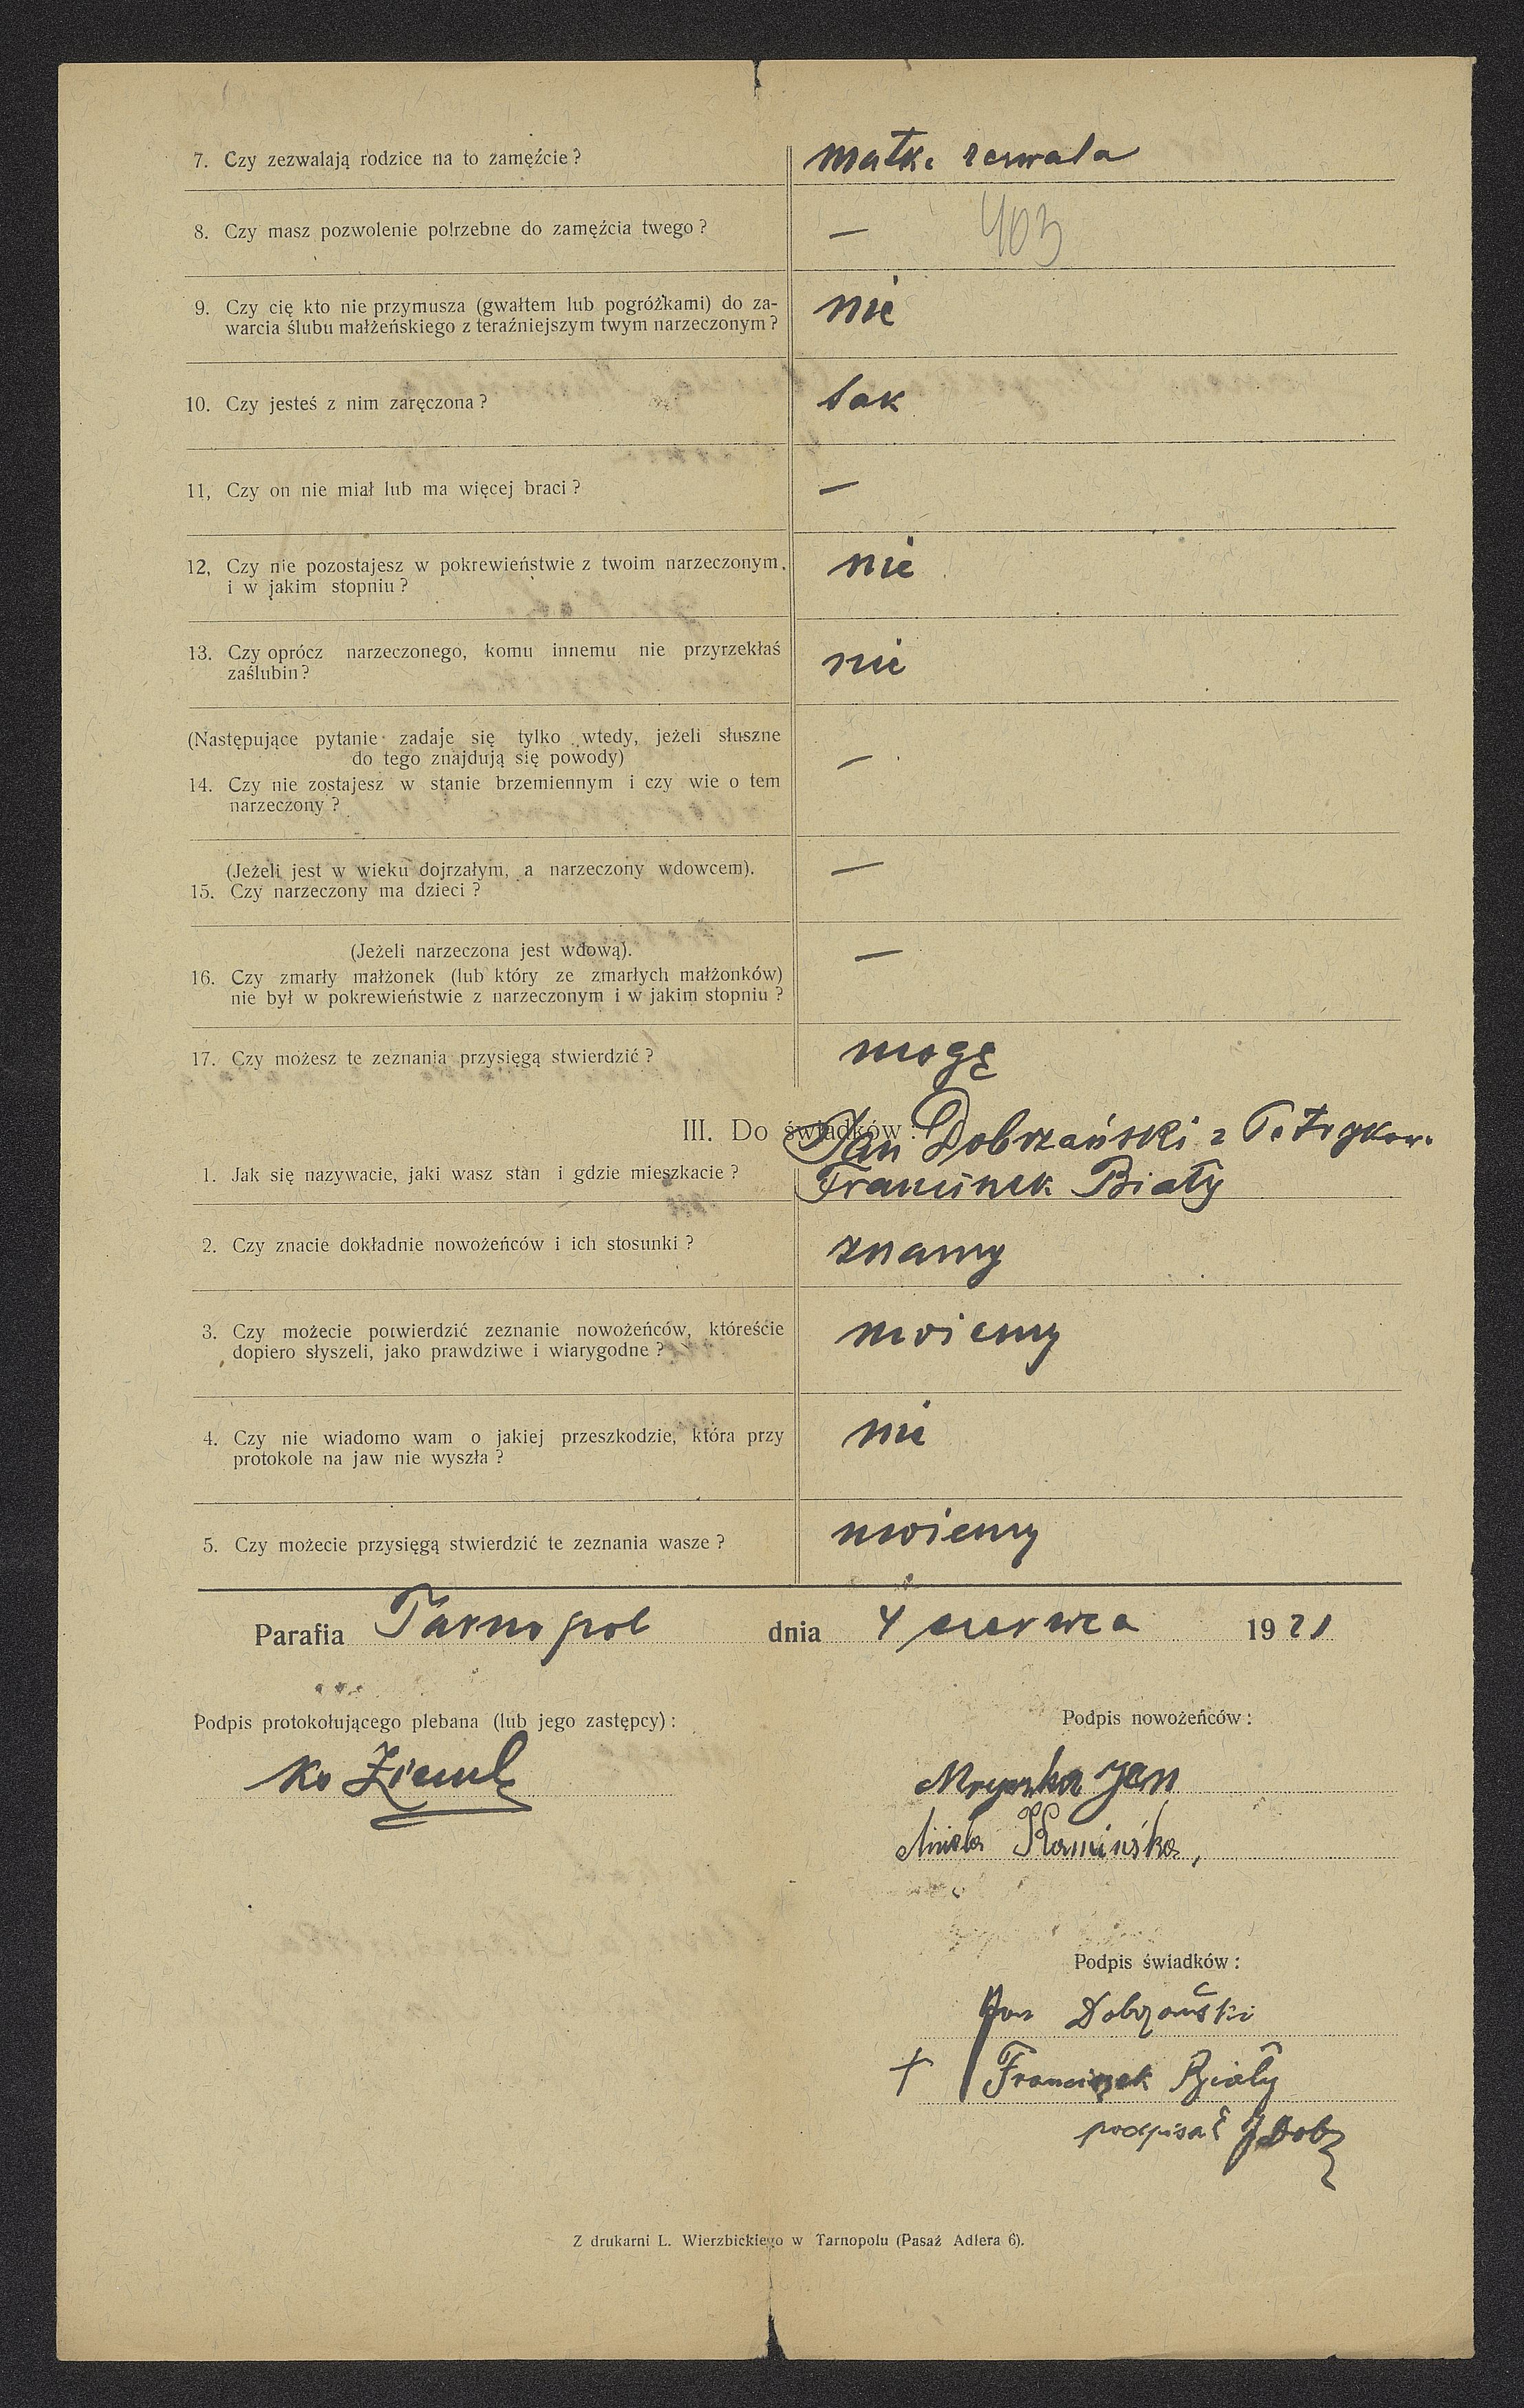 7. Czy zezwalają rodzice na to zamęźcie? matk. zezwala
8. Czy masz pozwolenie potrzebne do zamęźcia twego? — 403
9. Czy cię kto nie przymusza (gwałtem lub pogróżkami) do za- nie
warcia ślubu małżeńskiego z teraźniejszym twym narzeczonym?
10. Czy jesteś z nim zaręczona? tak
11, Czy on nie miał lub ma więcej braci? —
12, Czy nie pozostajesz w pokrewieństwie z twoim narzeczonym, nie
i w jakim stopniu?
13. Czy oprócz narzeczonego, komu innemu nie przyrzekłaś nie
zaślubin?
(Następujące pytanie zadaje się tylko wtedy, jeżeli słuszne
do tego znajdują się powody) —
14. Czy nie zostajesz w stanie brzemiennym i czy wie o tem
narzeczony?
(Jeżeli jest w wieku dojrzałym, a narzeczony wdowcem). —
15. Czy narzeczony ma dzieci?
(Jeżeli narzeczona jest wdową). —
16. Czy zmarły małżonek (lub który ze zmarłych małżonków)
nie był w pokrewieństwie z narzeczonym i w jakim stopniu?
17. Czy możesz te zeznania przysięgą stwierdzić? mogę
III. Do świadków: Jan Dobrzański z Petrykow.
1. Jak się nazywacie, jaki wasz stan i gdzie mieszkacie? Franciszek Biały
2. Czy znacie dokładnie nowożeńców i ich stosunki? znamy
3. Czy możecie potwierdzić zeznanie nowożeńców, któreście możemy
dopiero słyszeli, jako prawdziwe i wiarygodne?
4. Czy nie wiadomo wam o jakiej przeszkodzie, która przy nie
protokole na jaw nie wyszła?
5. Czy możecie przysięgą stwierdzić te zeznania wasze? możemy
Parafia Tarnopol dnia 4 czerwca 1921
Podpis protokołującego plebana (lub jego zastępcy): Podpis nowożeńców:
Ks Jan
Aniela Kamińska,
Podpis świadków:
Jan Dobrzański
+ Franciszek Biały
podpisał JDob
Z drukarni L. Wierzbickiego w Tarnopolu (Pasaż Adlera 6).